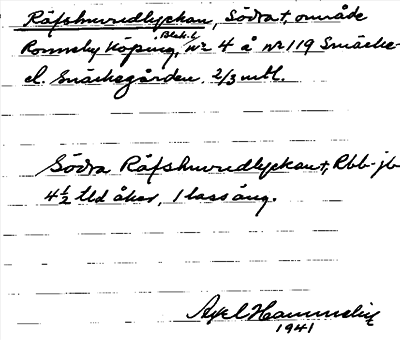 Räfshuvudlyckan, Södra †, område
Ronneby Köping, Blek. l. nr 4 å nr 119 Smäcke-
el. Smäckegården. 2/3 mtl.
Södra Räfshuvudlyckan †, Rbb-jb
4½ tld åker, 1 lass äng.
Axel
1941